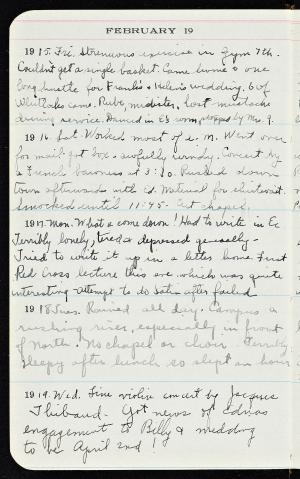 FEBRUARY 19
1915. Fri. Strenuous exercise in Gym 7th.
Couldn't get a single basket. Came home & one
long hustle for Frank's & Helen's wedding. 6 of
Whitlocks came. Rube, minister, lost mustache
during service. Danced in E's room, stopped by Mrs. G.
1916. Sat. Worked most of a. M. Went over
for mail, got box - awfully windy. Concert by
a French baroness at 3:30. Rushed down
town afterwards with Ed. Material for shirtwaist.
Smocked until 11:45. Cut chapel.
1917. Mon. What a come down! Had to write in Ec
Terribly lonely, tired & depressed generally -
Tried to write it up in a letter home. First
Red Cross lecture this eve which was quite
interesting - attempt to do Latin after failed
1918. Tues. Rained all day. Campus a
rushing river, especially in front
of North. No chapel or choir. Terribly
sleepy after lunch so slept an hour
1919. Wed. Fine violin concert by Jacques
Thibaud. Got news of Edna's
engagement to Billy & wedding
to be April 2nd!